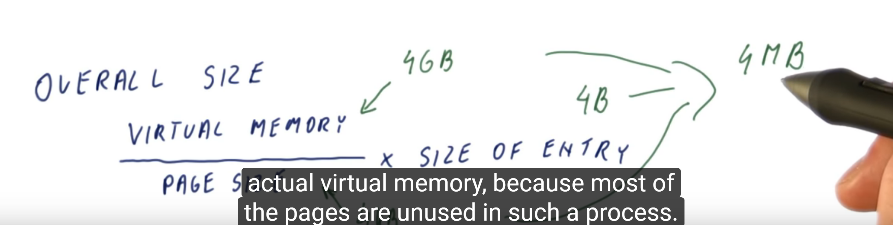 OVERALL SIZE
4GB
4B
4MB
VIRTUAL MEMORY
x SIZE OF ENTRY
PAGE
actual virtual memory, because most of
the pages are unused in such a process.